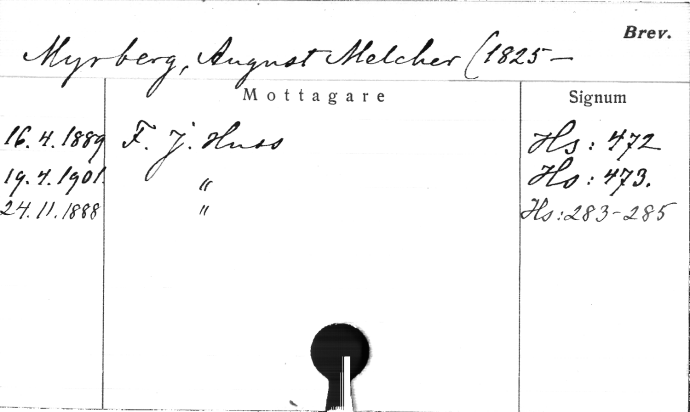 Brev.
Myrberg, August Melcher (1825 –
Mottagare Signum
16.4.1889 F. J. Huss Hs: 472
19.4.1901. " Hs: 473.
24.11.1888 " Hs: 283-285